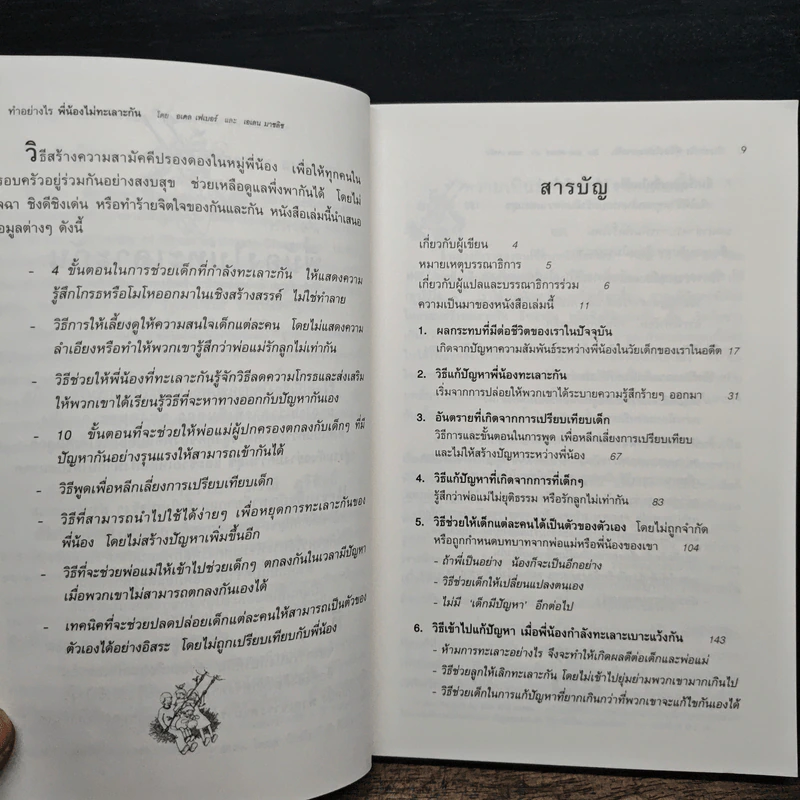 ทำอย่างไร พี่น้องไม่ทะเลาะกัน โดย อเดล เฟเบอร์ และ เอเลน มาซลิช
วิธีสร้างความสามัคคีปรองดองในหมู่พี่น้อง เพื่อให้ทุกคนใน
รอบครัวอยู่ร่วมกันอย่างสงบสุข ช่วยเหลือดูแลพึ่งพากันได้ โดยไม่
จฉา ชิงดีชิงเด่น หรือทำร้ายจิตใจของกันและกัน หนังสือเล่มนี้นำเสนอ
อมูลต่างๆ ดังนี้
- 4 ขั้นตอนในการช่วยเด็กที่กำลังทะเลาะกัน ให้แสดงความ
รู้สึกโกรธหรือโมโหออกมาในเชิงสร้างสรรค์ ไม่ใช่ทำลาย
- วิธีการให้เลี้ยงดูให้ความสนใจเด็กแต่ละคน โดยไม่แสดงความ
ลำเอียงหรือทำให้พวกเขารู้สึกว่าพ่อแม่รักลูกไม่เท่ากัน
- วิธีช่วยให้พี่น้องที่ทะเลาะกันรู้จักวิธีลดความโกรธและส่งเสริม
ให้พวกเขาได้เรียนรู้วิธีที่จะหาทางออกกับปัญหากันเอง
- 10 ขั้นตอนที่จะช่วยให้พ่อแม่ผู้ปกครองตกลงกับเด็กๆ ที่มี
ปัญหากันอย่างรุนแรงให้สามารถเข้ากันได้
- วิธีพูดเพื่อหลีกเลี่ยงการเปรียบเทียบเด็ก
- วิธีที่สามารถนำไปใช้ได้ง่ายๆ เพื่อหยุดการทะเลาะกันของ
พี่น้อง โดยไม่สร้างปัญหาเพิ่มขึ้นอีก
- วิธีที่จะช่วยพ่อแม่ให้เข้าไปช่วยเด็กๆ ตกลงกันในเวลามีปัญหา
เมื่อพวกเขาไม่สามารถตกลงกันเองได้
- เทคนิคที่จะช่วยปลดปล่อยเด็กแต่ละคนให้สามารถเป็นตัวของ
ตัวเองได้อย่างอิสระ โดยไม่ถูกเปรียบเทียบกับพี่น้อง
9
สารบัญ
เกี่ยวกับผู้เขียน 4
หมายเหตุบรรณาธิการ 5
เกี่ยวกับผู้แปลและบรรณาธิการร่วม 6
ความเป็นมาของหนังสือเล่มนี้ 11
1. ผลกระทบที่มีต่อชีวิตของเราในปัจจุบัน
เกิดจากปัญหาความสัมพันธ์ระหว่างพี่น้องในวัยเด็กของเราในอดีต 17
2. วิธีแก้ปัญหาพี่น้องทะเลาะกัน
เริ่มจากการปล่อยให้พวกเขาได้ระบายความรู้สึกร้ายๆ ออกมา 31
3. อันตรายที่เกิดจากการเปรียบเทียบเด็ก
วิธีการและขั้นตอนในการพูด เพื่อหลีกเลี่ยงการเปรียบเทียบ
และไม่ให้สร้างปัญหาระหว่างพี่น้อง 67
4. วิธีแก้ปัญหาที่เกิดจากการที่เด็กๆ
รู้สึกว่าพ่อแม่ไม่ยุติธรรม หรือรักลูกไม่เท่ากัน 83
5. วิธีช่วยให้เด็กแต่ละคนได้เป็นตัวของตัวเอง โดยไม่ถูกจำกัด
หรือถูกกำหนดบทบาทจากพ่อแม่หรือพี่น้องของเขา 104
- ถ้าพี่เป็นอย่าง น้องก็จะเป็นอีกอย่าง
- วิธีช่วยเด็กให้เปลี่ยนแปลงตนเอง
- ไม่มี 'เด็กมีปัญหา' อีกต่อไป
6. วิธีเข้าไปแก้ปัญหา เมื่อพี่น้องกำลังทะเลาะเบาะแว้งกัน 143
- ห้ามการทะเลาะอย่างไร จึงจะทำให้เกิดผลดีต่อเด็กและพ่อแม่
- วิธีช่วยลูกให้เลิกทะเลาะกัน โดยไม่เข้าไปยุ่มย่ามพวกเขามากเกินไป
- วิธีช่วยเด็กในการแก้ปัญหาที่ยากเกินกว่าที่พวกเขาจะแก้ไขกันเองได้